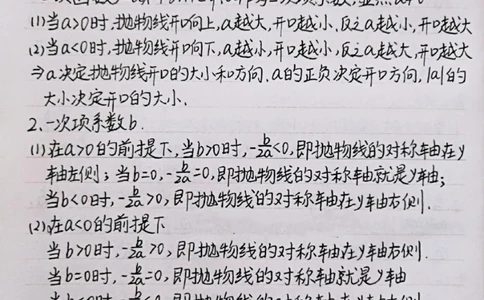 (1)当a>0时,抛物线开口向上,a越大,开口越小,反之a越小,开口越大
(2)当a<0时,抛物线开口向下,a越小,开口越小,反之a越大,开口越大
⇒a决定抛物线开口的大小和方向.a的正负决定开口方向,|a|的
大小决定开口的大小.
2.一次项系数b.
(1)在a>0的前提下,当b>0时,-b/2a<0,即抛物线的对称轴在y
轴左侧;当b=0,-b/2a=0,即抛物线的对称轴就是y轴;
当b<0时,-b/2a>0,即抛物线的对称轴在y轴右侧.
(2)在a<0的前提下
当b>0时,-b/2a>0,即抛物线的对称轴在y轴右侧.
当b=0时,-b/2a=0,即抛物线的对称轴就是y轴